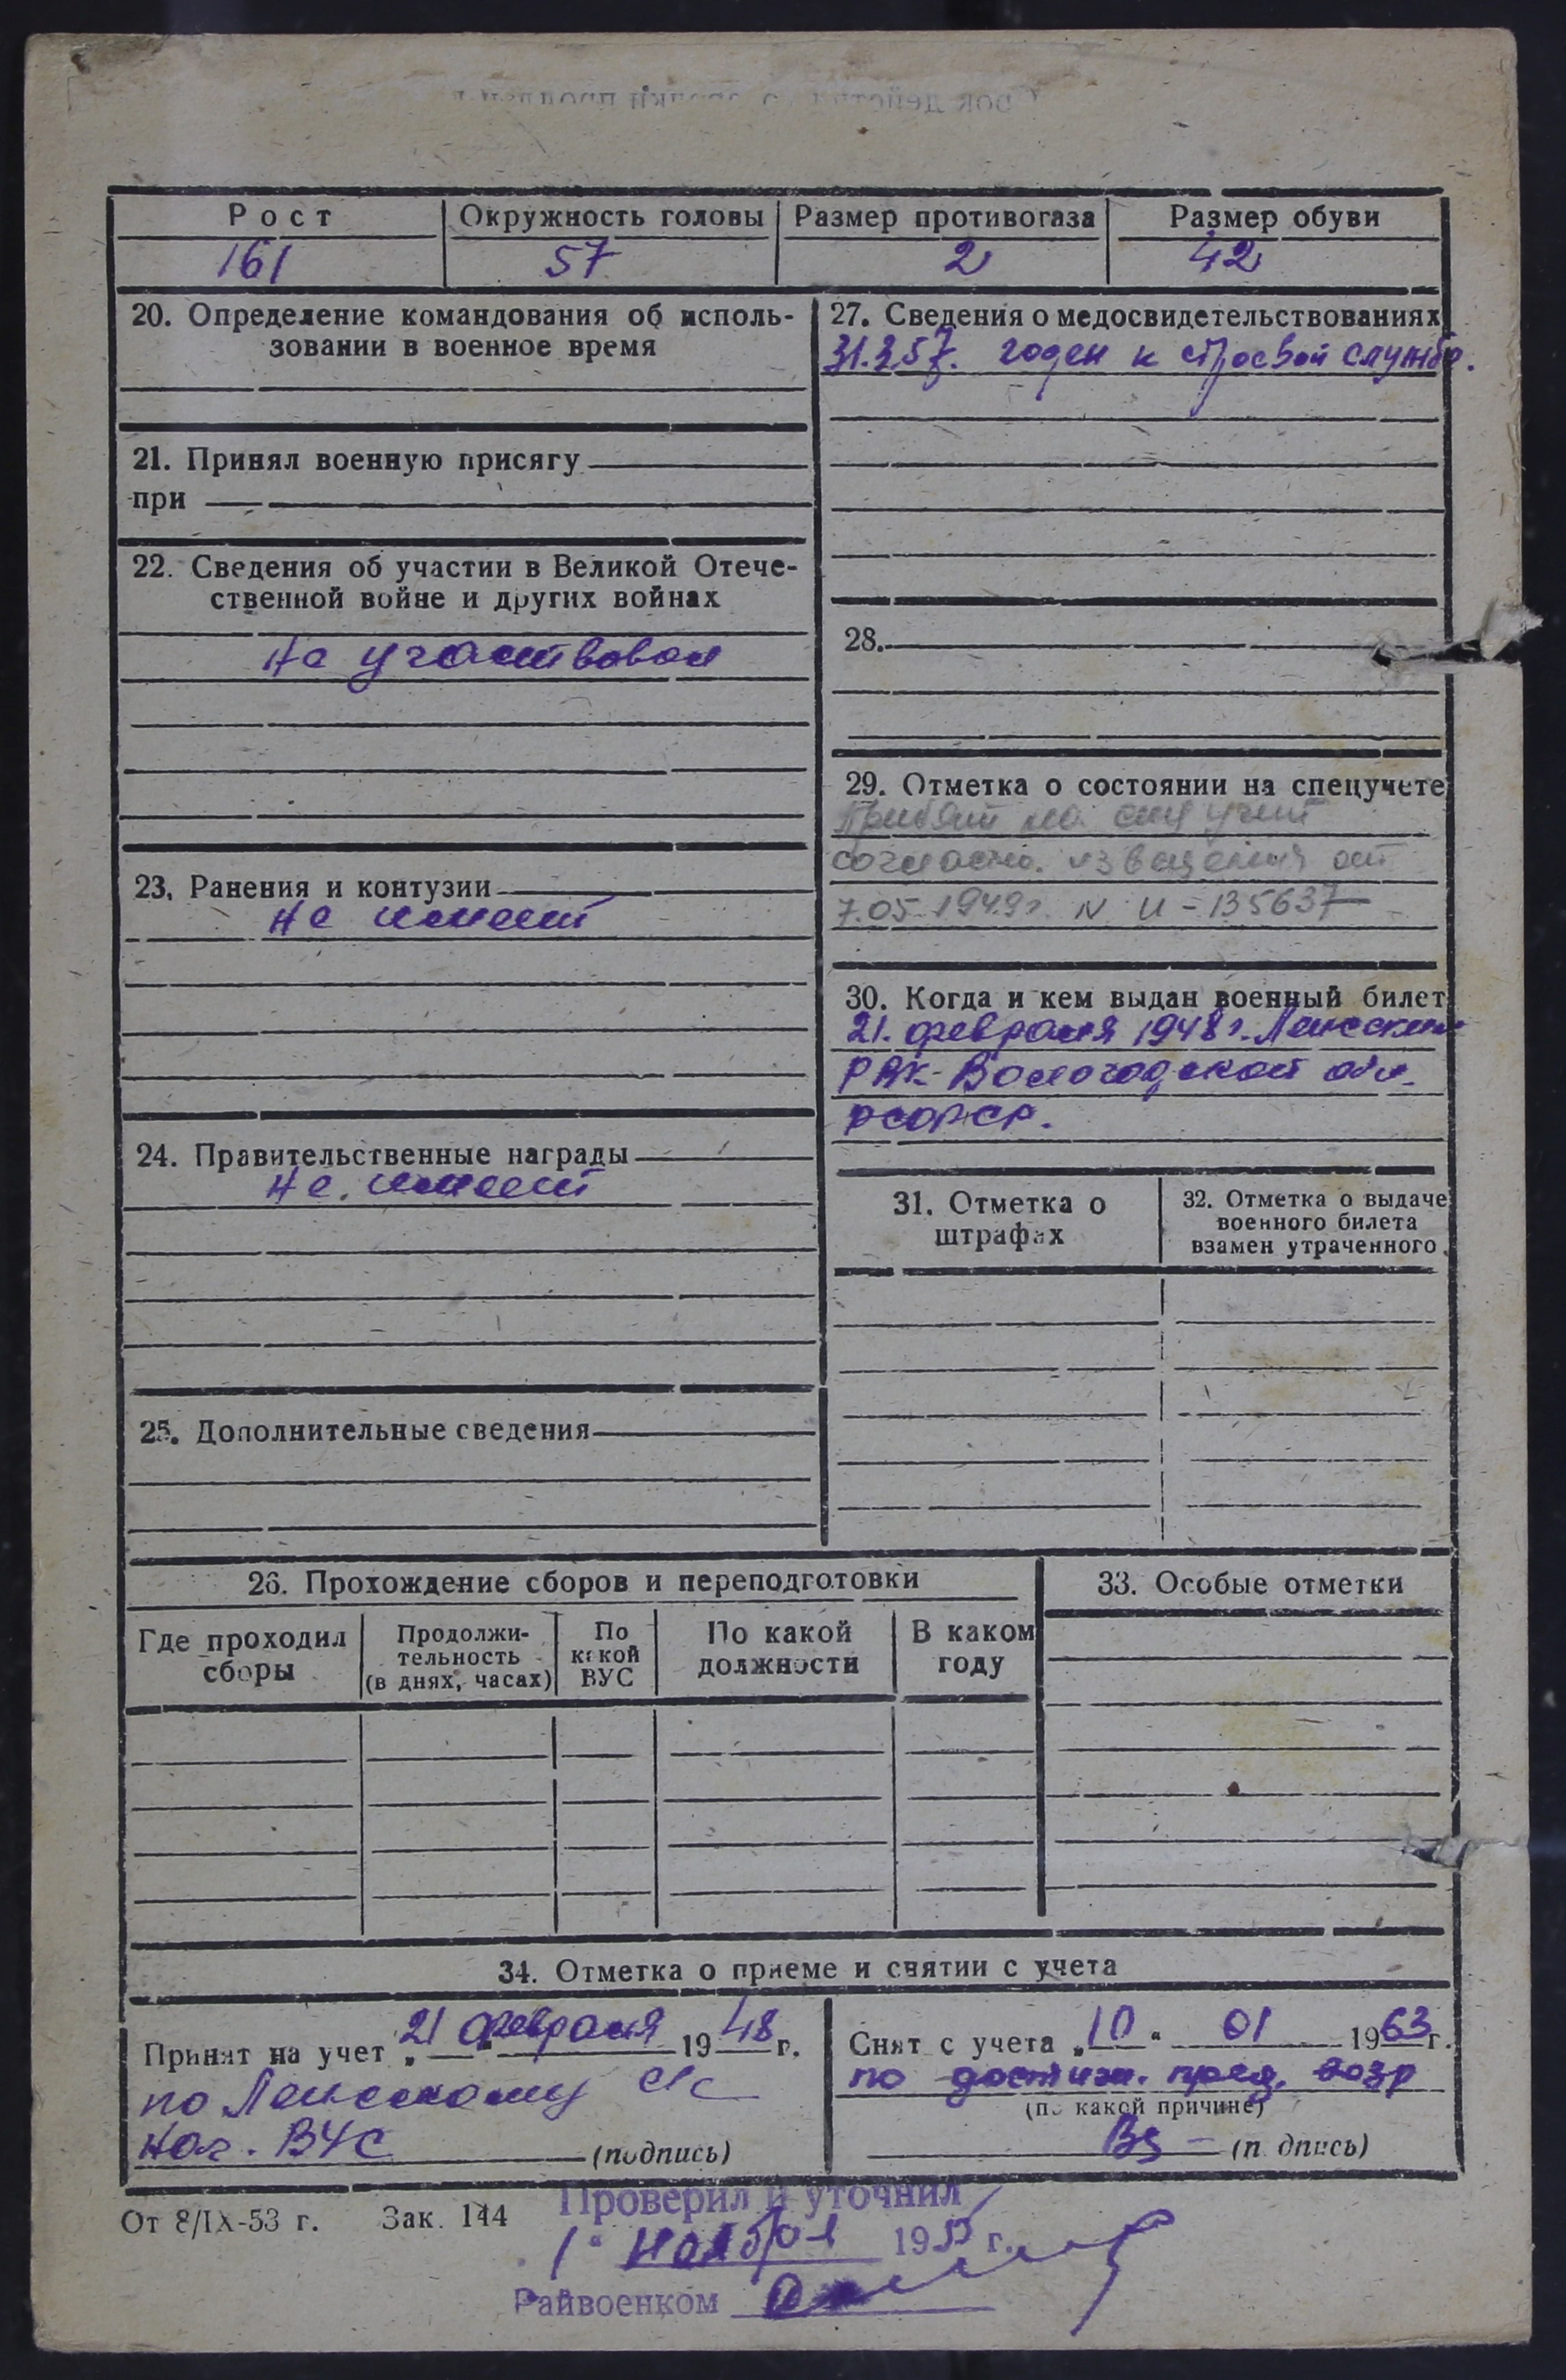 Рост Окружность головы Размер противогаза Размер обуви
161 57 2 42
20. Определение командования об исполь-
зовании в военное время
21. Принял военную присягу
при
22. Сведения об участии в Великой Отече-
ственной войне и других войнах
Не участвовал
23. Ранения и контузии
Не имеет
24. Правительственные награды
Не имеет
25. Дополнительные сведения
27. Сведения о медосвидетельствованиях
31.3.57. годен к строевой службе.
28.
29. Отметка о состоянии на спецучете
Принят на спец учет
согласно извещения от
7.05.1949г. N И-135637
30. Когда и кем выдан военный билет
21. февраля 1948 г. Ленским
РВК- Вологодской обл.
РСФСР.
31. Отметка о
штрафах
32. Отметка о выдаче
военного билета
взамен утраченного
26. Прохождение сборов и переподготовки
Где проходил
сборы
Продолжи-
тельность
(в днях, часах)
По
какой
ВУС
По какой
должности
В каком
году
33. Особые отметки
34. Отметка о приеме и снятии с учета
Принят на учет „21“ февраля 1948 г.
по Ленскому с/с
Нач. ВУС (подпись)
Снят с учета „10“ 01 1963г.
по достиж. пред. возр
(по какой причине)
(подпись)
От 8/IX-53 г. Зак. 144
Проверил и уточнил
1 " ноября 1955 г.
Райвоенком